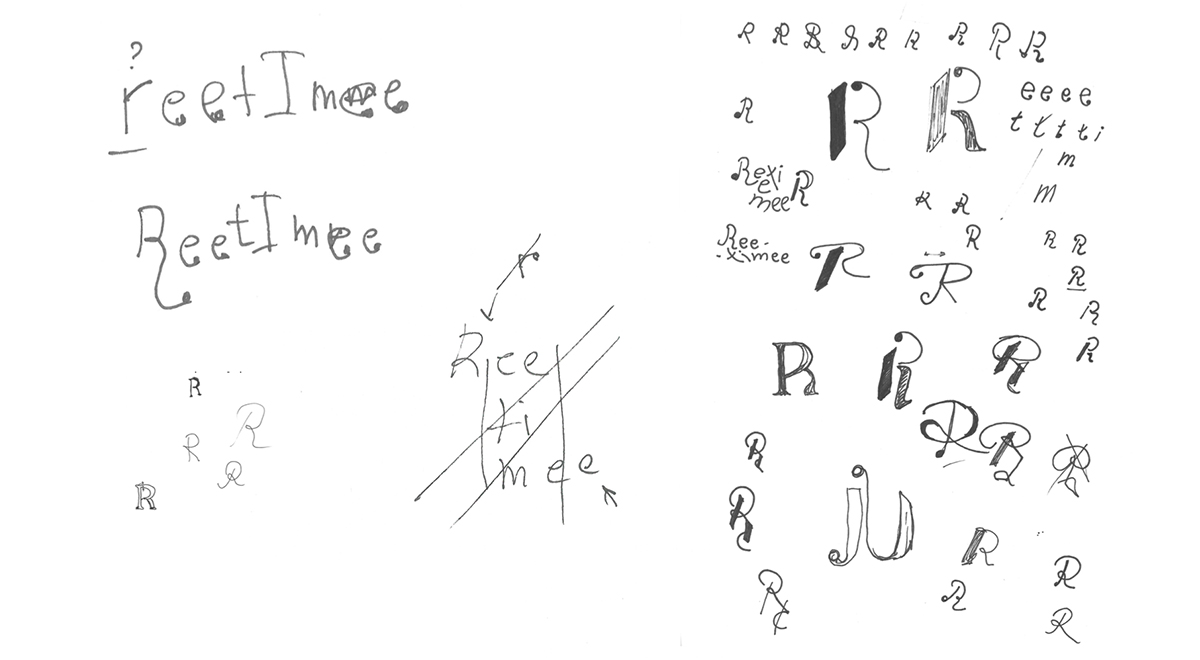 ?
reetImee
ReetImee
R
R R
R
R
r
Ree
ti
mee
R R B R R R R R R
R R R
e e e e
t t t t i
m
m
Rexi
e R
mee
R R
Ree-
-ximee
R R
R
R R
R
R R
R
R R R
R R
R R
R
U
R
R
R
R
R